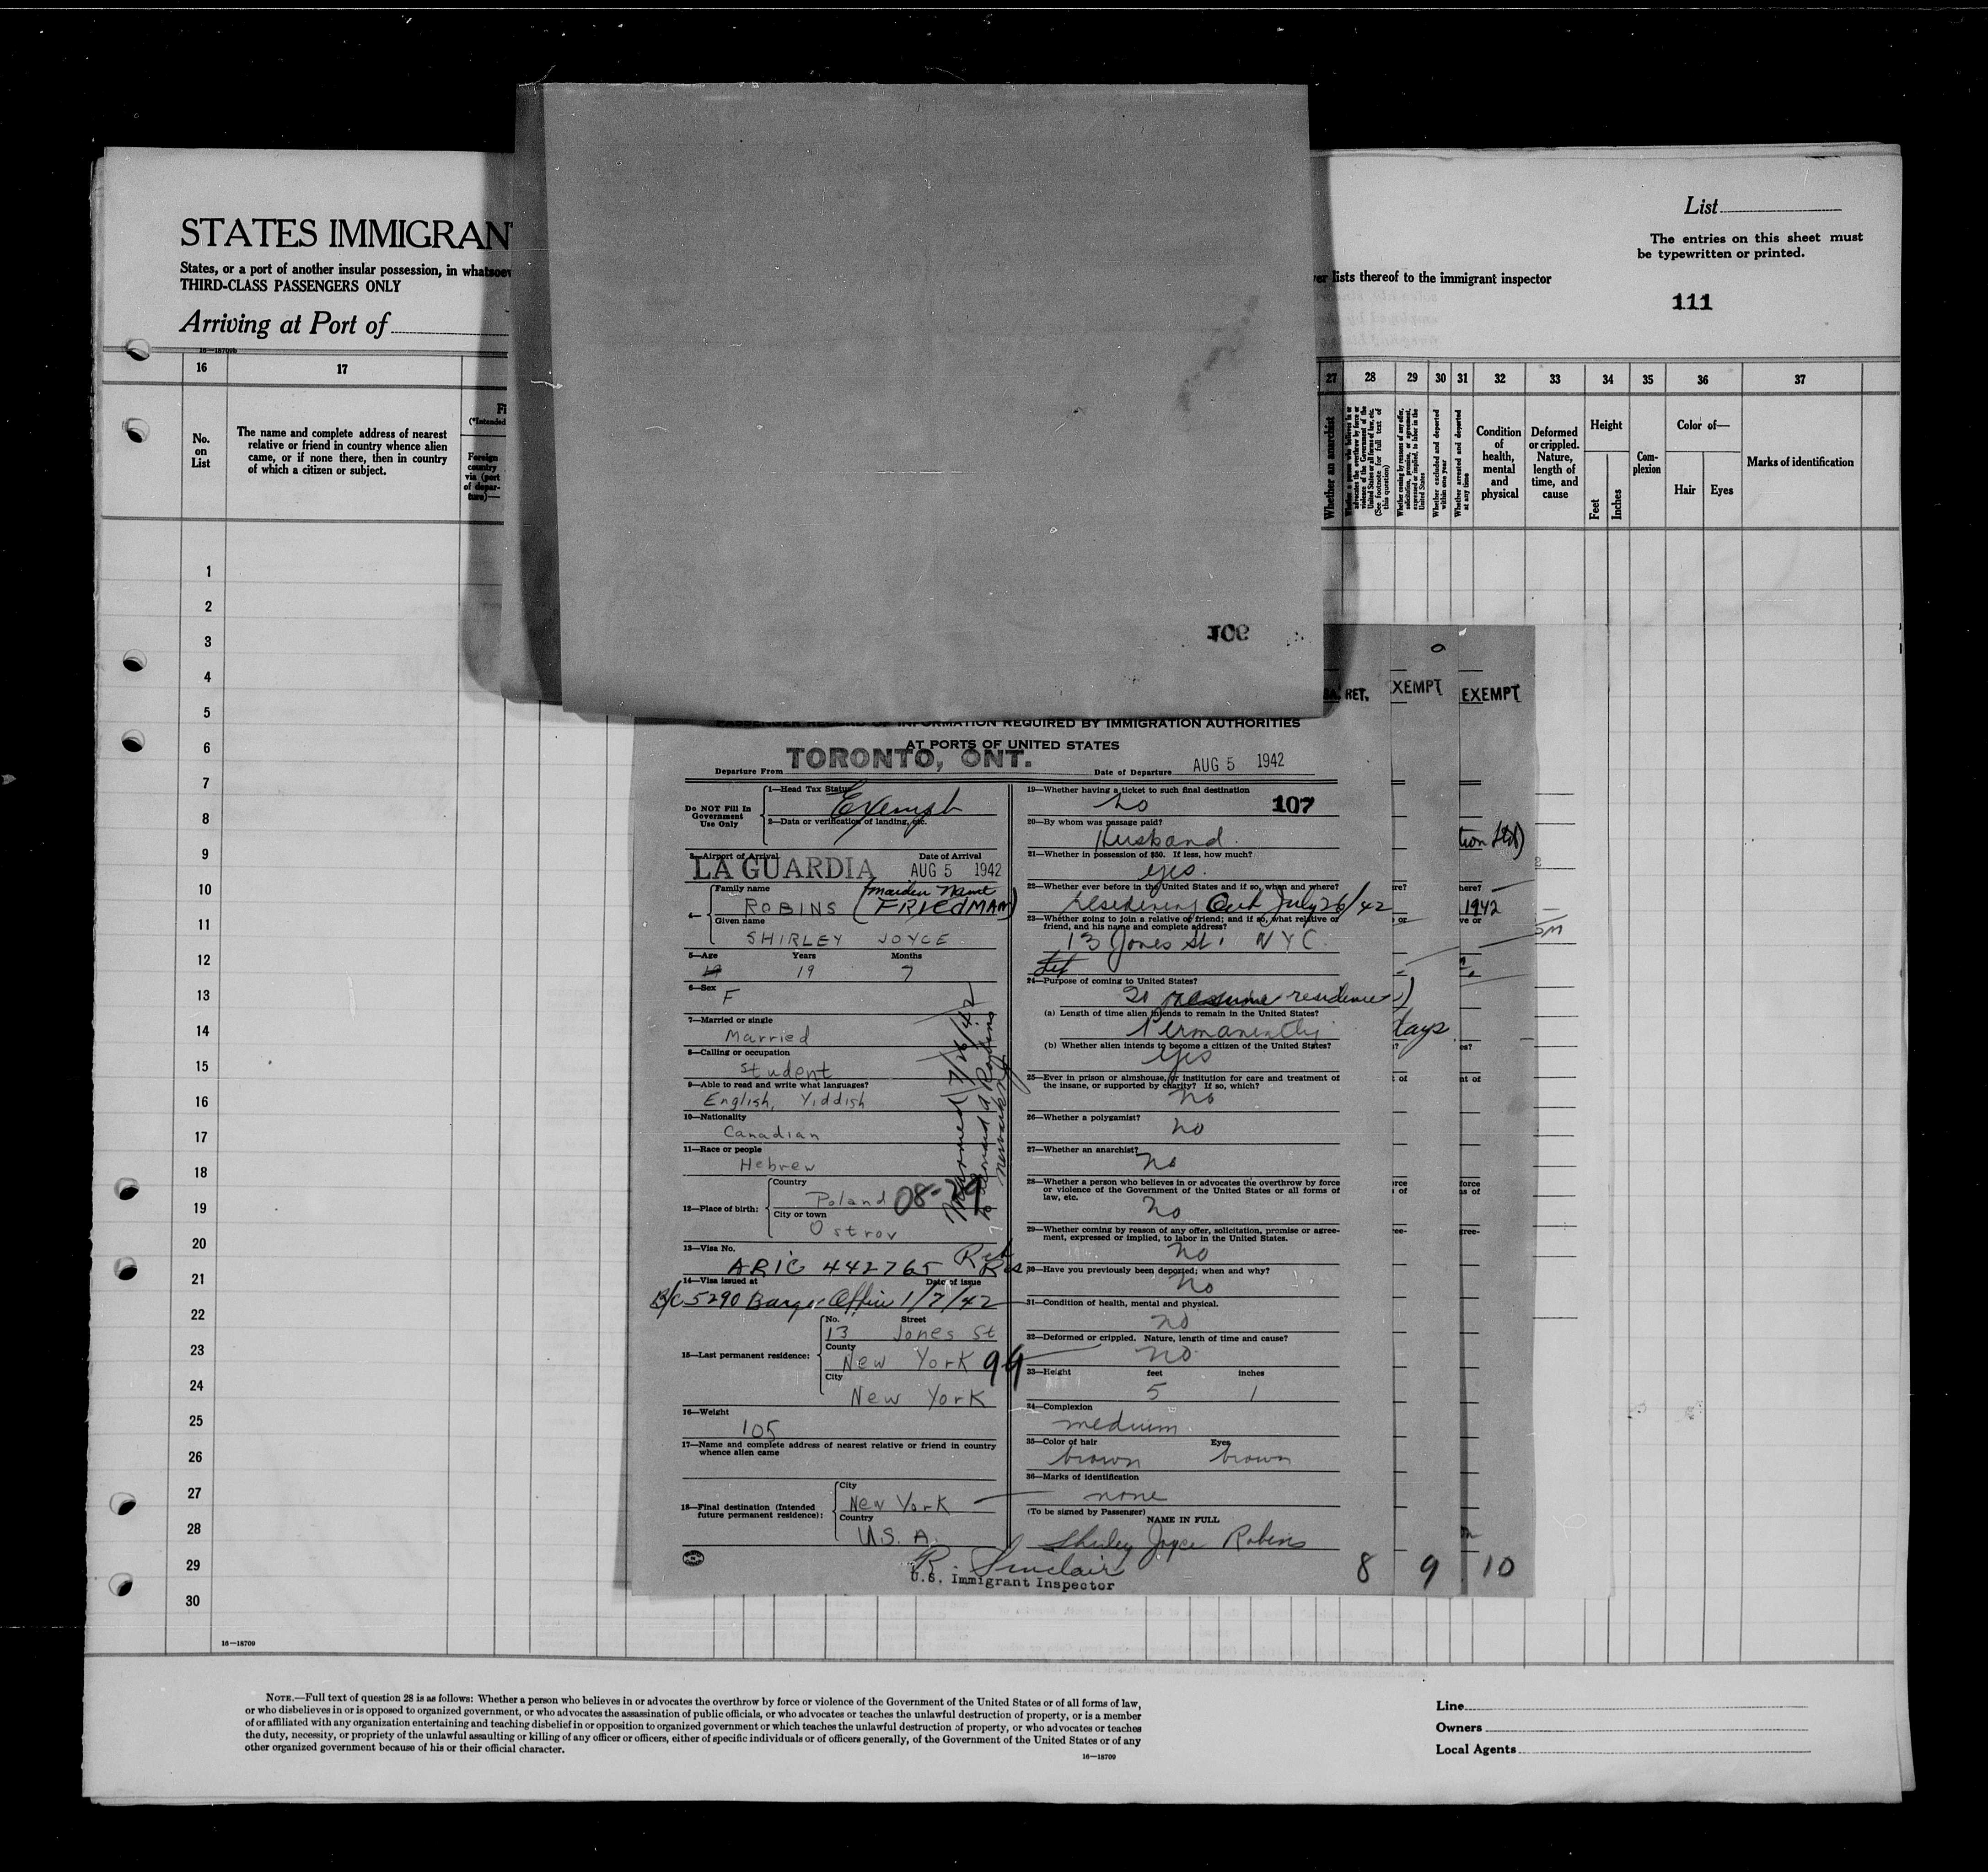 STATES IMMIGRANT
States, or a port of another insular possession, in whatsoev
THIRD-CLASS PASSENGERS ONLY
Arriving at Port of
16—18709b
List
The entries on this sheet must
be typewritten or printed.
er lists thereof to the immigrant inspector
111
16 17 27 28 29 30 31 32 33 34 35 36 37
No.
on
List
The name and complete address of nearest
relative or friend in country whence alien
came, or if none there, then in country
of which a citizen or subject.
Fi
(*Intended
Foreign
country
via (port
of depar-
ture)—
Whether an anarchist
Whether a person who believes in or
advocates the overthrow by force or
violence of the Government of the
United States or all forms of law, etc.
(See footnote for full text of
this question)
Whether coming by reason of any offer,
solicitation, promise, or agreement,
expressed or implied, to labor in the
United States
Whether excluded and deported
within one year
Whether arrested and deported
at any time
Condition
of
health,
mental
and
physical
Deformed
or crippled.
Nature,
length of
time, and
cause
Height
Feet
Inches
Com-
plexion
Color of—
Hair Eyes
Marks of identification
1
2
3
4
5
6
7
8
9
10
11
12
13
14
15
16
17
18
19
20
21
22
23
24
25
26
27
28
29
30
16—18709
RET. EXEMPT EXEMPT
PASSENGER RECORD OF INFORMATION REQUIRED BY IMMIGRATION AUTHORITIES
AT PORTS OF UNITED STATES
Departure From TORONTO, ONT. Date of Departure AUG 5 1942
Do NOT Fill In
Government
Use Only
1—Head Tax Status
Exempt
2—Data or verification of landing, etc.
3—Airport of Arrival Date of Arrival
LA GUARDIA AUG 5 1942
4—
Family name (Maiden Name
ROBINS FRIEDMAN)
Given name
SHIRLEY JOYCE
5—Age Years Months
19 19 7
6—Sex
F
7—Married or single
Married
8—Calling or occupation
Student
9—Able to read and write what languages?
English, Yiddish
10—Nationality
Canadian
11—Race or people
Hebrew
12—Place of birth:
Country
Poland 08-79
City or town
Ostrov
13—Visa No.
ARIC 442765 Ret Res
14—Visa issued at Date of issue
B/C 5290 Barge Office 1/7/42
15—Last permanent residence:
No. Street
13 Jones St
County
New York 99
City
New York
16—Weight
105
17—Name and complete address of nearest relative or friend in country
whence alien came
18—Final destination (Intended
future permanent residence):
City
New York
Country
U.S.A.
Married 7/26/42
to Robins
Newark NJ
19—Whether having a ticket to such final destination
no 107
20—By whom was passage paid?
Husband.
21—Whether in possession of $50. If less, how much?
yes.
22—Whether ever before in the United States and if so, when and where?
Out July 26/42
23—Whether going to join a relative or friend; and if so, what relative or
friend, and his name and complete address?
13 Jones St. NYC.
24—Purpose of coming to United States?
To resume residence
(a) Length of time alien intends to remain in the United States?
Permanently
(b) Whether alien intends to become a citizen of the United States?
yes
25—Ever in prison or almshouse, or institution for care and treatment of
the insane, or supported by charity? If so, which?
no
26—Whether a polygamist?
no
27—Whether an anarchist?
no
28—Whether a person who believes in or advocates the overthrow by force
or violence of the Government of the United States or all forms of
law, etc.
no
29—Whether coming by reason of any offer, solicitation, promise or agree-
ment, expressed or implied, to labor in the United States.
no
30—Have you previously been deported; when and why?
no
31—Condition of health, mental and physical.
no
32—Deformed or crippled. Nature, length of time and cause?
no
33—Height feet inches
5 1
34—Complexion
medium
35—Color of hair Eyes
brown brown
36—Marks of identification
none
(To be signed by Passenger)
NAME IN FULL
Shirley Joyce Robins
R. Sinclair
U.S. Immigrant Inspector
8 9 10
1942
days
NOTE.—Full text of question 28 is as follows: Whether a person who believes in or advocates the overthrow by force or violence of the Government of the United States or of all forms of law,
or who disbelieves in or is opposed to organized government, or who advocates the assassination of public officials, or who advocates or teaches the unlawful destruction of property, or is a member
of or affiliated with any organization entertaining and teaching disbelief in or opposition to organized government or which teaches the unlawful destruction of property, or who advocates or teaches
the duty, necessity, or propriety of the unlawful assaulting or killing of any officer or officers, either of specific individuals or of officers generally, of the Government of the United States or of any
other organized government because of his or their official character.
16—18709
Line
Owners
Local Agents